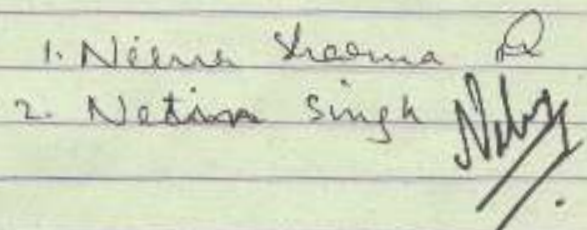 1. Neena Sharma
2. Netin Singh